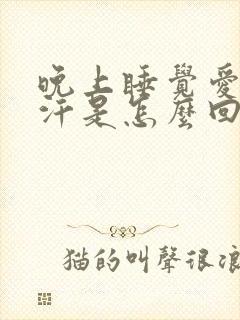 晚上睡覺愛
汗是怎麼回
猫的叫聲很浪